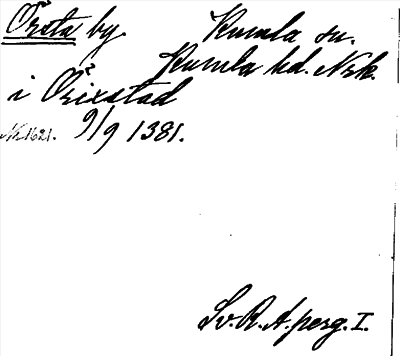 Örsta by. Kumla sn.
Kumla hd. Nrk.
i Örixstad
Nr 1621. 9/9 1381.
Sv. R. A. perg. I.